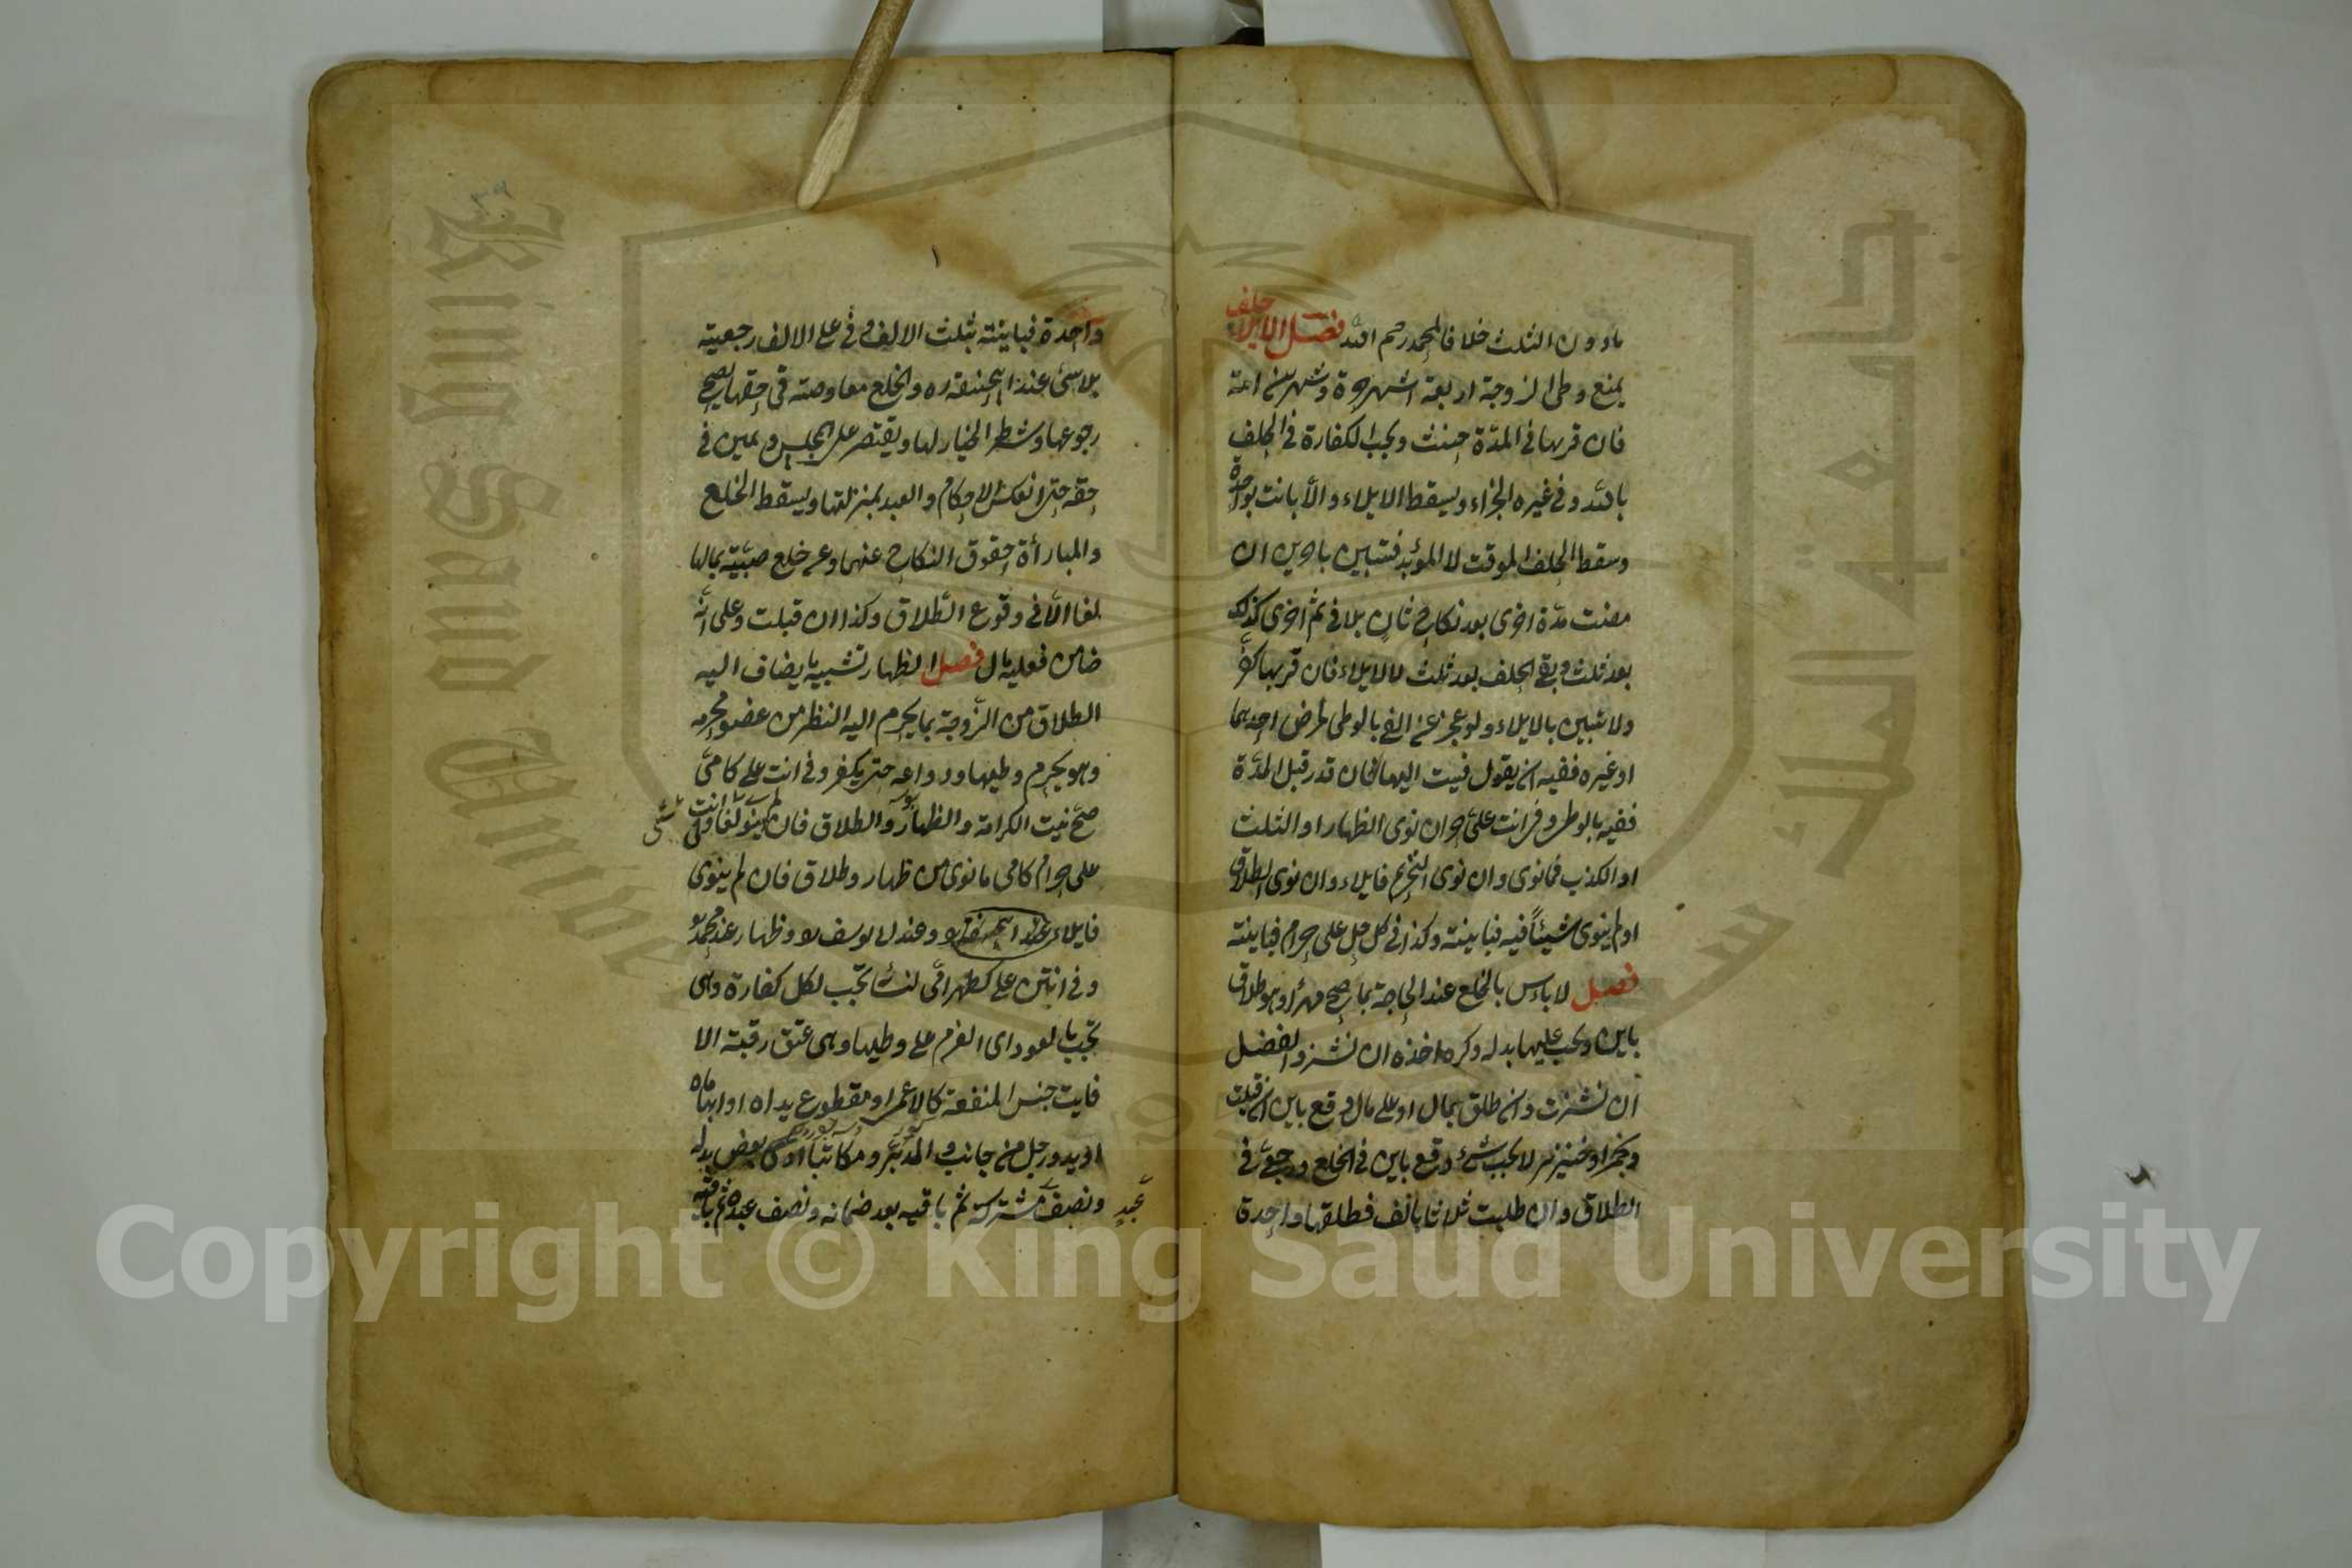 مادون الثلث خلافا لمحمد رحم الله فصل الايلاء حلف
يمنع وطى الزوجة اربعة اشهر حرة وشهرين امة
فان قربها فى المدّة حنث ويجب الكفارة فى الحلف
بالله وفى غيره الجزاء ويسقط الايلاء والّا بانت بواحدة
وسقط الحلف الموقت لا المؤبّد فتبين باخرى ان
مضت مدّة اخرى بعد نكاح ثانٍ بلا فئ ثم اخرى كذلك
بعد ثلث وبقى الحلف بعد ثلث لا الايلاء فان قربها كفّر
ولا تبين بالايلاء ولو عجز عن الفئ بالوطى لمرض احدهما
او غيره ففيه ان يقول فئت اليها فان قدر قبل المدّة
ففيه بالوطى وفى انت علىّ حرام ان نوى الظهار او الثلث
او الكذب فما نوى وان نوى التحريم فايلاء وان نوى الطلاق
او لم ينوى شيئًا فيه فباينة وكذا فى كل حل على حرام فباينة
فصل لا باءس بالخلع عند الحاجة بما صح مهرًا وهو طلاق
باين ويجب عليها بدله وكره اخذه ان نشز والفضل
ان نشزت وان طلق بمال او على مال وقع باين ان قبلت
وبخمر او خنزير لا يجب شئ وقع باين فى الخلع ورجعىّ فى
الطلاق وان طلبت ثلاثا بالف فطلقها واحدة
واحدة فباينة بثلث الالف وفى على الالف رجعية
بلا شئ عند ابيحنيفة ره والخلع معاوضة فى حقها يصح
رجوعها وشطر الخيار لها ويقتصر على المجلس ويمين فى
حقه حتى انعكس الاحكام والعبد بمنزلتها ويسقط الخلع
والمبارأة حقوق النكاح عنهما وعن خلع صبيّة بمالها
لغا الّا فى وقوع الطلاق وكذا ان قبلت وعلى انّه
ضامن فعليه المال فصل الظهار تشبيه ما يضاف اليه
الطلاق من الزّوجة بما يحرم اليه النظر من عضو محرمه
وهو يحرم وطيها ودواعيه حتى يكفر وفى انت على كامّى
صحّ نيت الكرامة والظهار والطلاق فان لم ينو لغا وفى انت
على حرام كامى ما نوى من ظهار وطلاق فان لم ينوى
فايلاء عند ابيحنيفة ره وعند ابى يوسف ره وظهار عند محمد ره
وفى انتن على كظهر امّى لنسائه تجب لكل كفارة وهى
تجب بالعود اى العزم على وطيها وهى عتق رقبة الا
فايت جنس المنفعة كالاعمى او مقطوع يداه او ابهاماه
او يد ورجل من جانب والمدبّر ومكاتبا ادى بعض بدله
ونصف مشتركة ثم باقيه بعد ضمانه ونصف عبده ثم باقيه
عبد